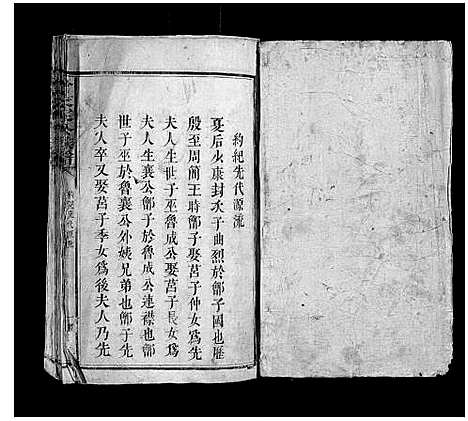 約紀先代源流
夏后少康封次子曲烈於鄫子國也歷
殷至周簡王時鄫子娶莒子仲女爲先
夫人生世子巫魯成公娶莒子長女爲
夫人生襄公鄫子於魯成公連襟也鄫
世子巫於魯襄公外姨兄弟也鄫子先
夫人卒又娶莒子季女爲後夫人乃先